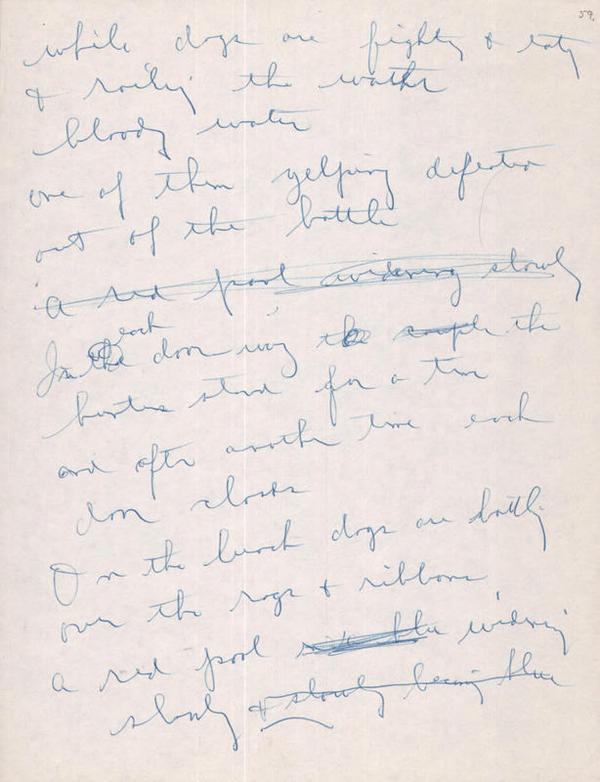 59.
while dogs are fighting & eating
& roiling the water
bloody water
one of them yelping defeated
out of the battle
a red pool widening slowly
In the each door way the couple the
hunters stand for a time
and after another time each
door closes
On the beach dogs are battling
over the rags & ribbons
a red pool blue widening
slowly & slowly becoming blue